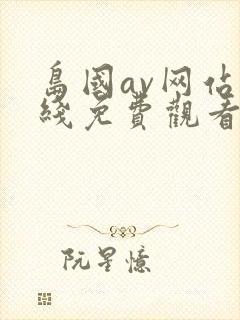 島國av网佔
綫免費觀看
阮星憶